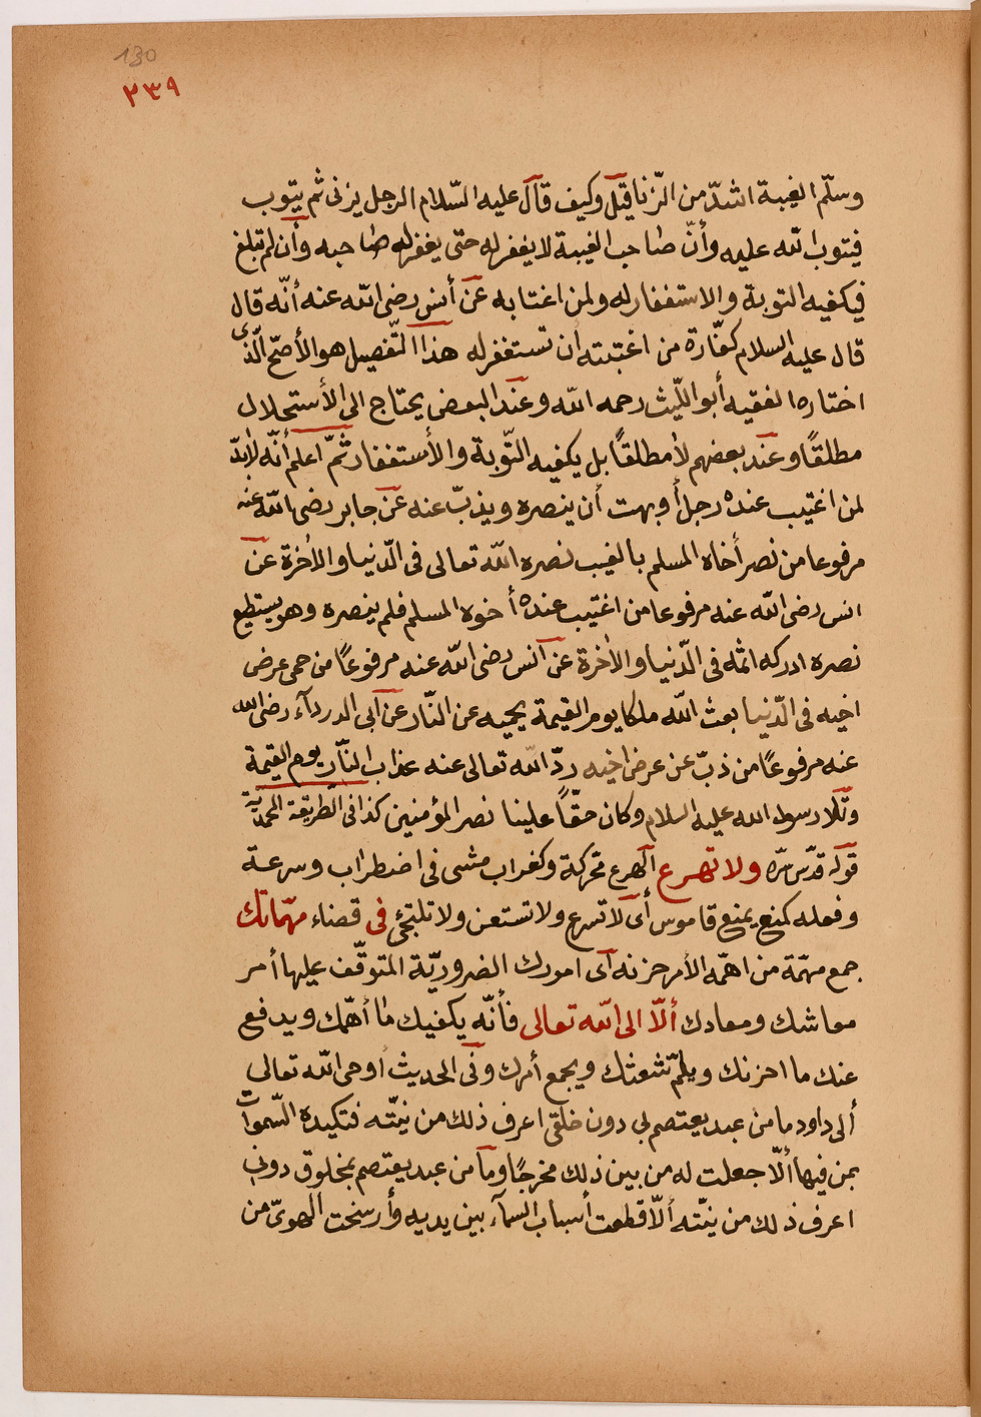 130
٢٣٩
وسلّم الغيبة اشدّ من الزّنا قيل وكيف قال عليه السّلام الرجل يزنى ثم يتوب
فيتوب الله عليه وأنّ صاحب الغيبة لا يغفر له حتى يغفر له صاحبه وأن لم تبلغ
فيكفيه التوبة والاستغفار له ولمن اغتابه عن أنس رضى الله عنه أنّه قال
قال عليه السلام كفّارة من اغتبته ان تستغفر له هذا التّفصيل هو الأصحّ الّذى
اختاره الفقيه أبو اللّيث رحمه الله وعند البعض يحتاج الى الأستحلال
مطلقًا وعند بعضهم لا مطلقًا بل يكفيه التّوبة والأستغفار ثمّ اعلم أنّه لابدّ
لمن اغتيب عنده رجل أو بهت أن ينصره ويذبّ عنه عن جابر رضى الله عنه
مرفوعا من نصر أخاه المسلم بالغيب نصره الله تعالى فى الدّنيا والأخرة عن
انس رضى الله عنه مرفوعا من اغتيب عنده أخوه المسلم فلم ينصره وهو يستطيع
نصره ادركه اثمه فى الدّنيا والأخرة عن أنس رضى الله عنه مرفوعًا من حمى عرض
اخيه فى الدّنيا بعث الله ملكا يوم القيمة يحميه عن النّار عن أبى الدرداء رضى الله
عنه مرفوعًا من ذبّ عن عرض اخيه ردّ الله تعالى عنه عذاب النّار يوم القيمة
وتلا رسول الله عليه السلام وكان حقّا علينا نصر المؤمنين كذا فى الطريقة المحمديّة
قوله قدّس سرّه ولا تهرع الهرع محركة وكغراب مشى فى اضطراب وسرعة
وفعله كمنع يمنع قاموس أى لا تسرع ولا تستعن ولا تلتجئ فى قضاء مهمّاتك
جمع مهمّة من اهمّه الأمر حزنه أى امورك الضروريّة المتوقّف عليها أمر
معاشك ومعادك ألّا الى الله تعالى فأنّه يكفيك ما أهمّك ويدفع
عنك ما احزنك ويلمّ شعثك ويجمع أمرك وفى الحديث أوحى الله تعالى
ألى داود ما من عبد يعتصم بى دون خلقى اعرف ذلك من نيّته فتكيده السّموات
بمن فيها ألّا جعلت له من بين ذلك مخرجًا وما من عبد يعتصم بمخلوق دونى
اعرف ذلك من نيّته ألّا قطعت أسباب السمآء بين يديه وأرسخت الهوىّ من